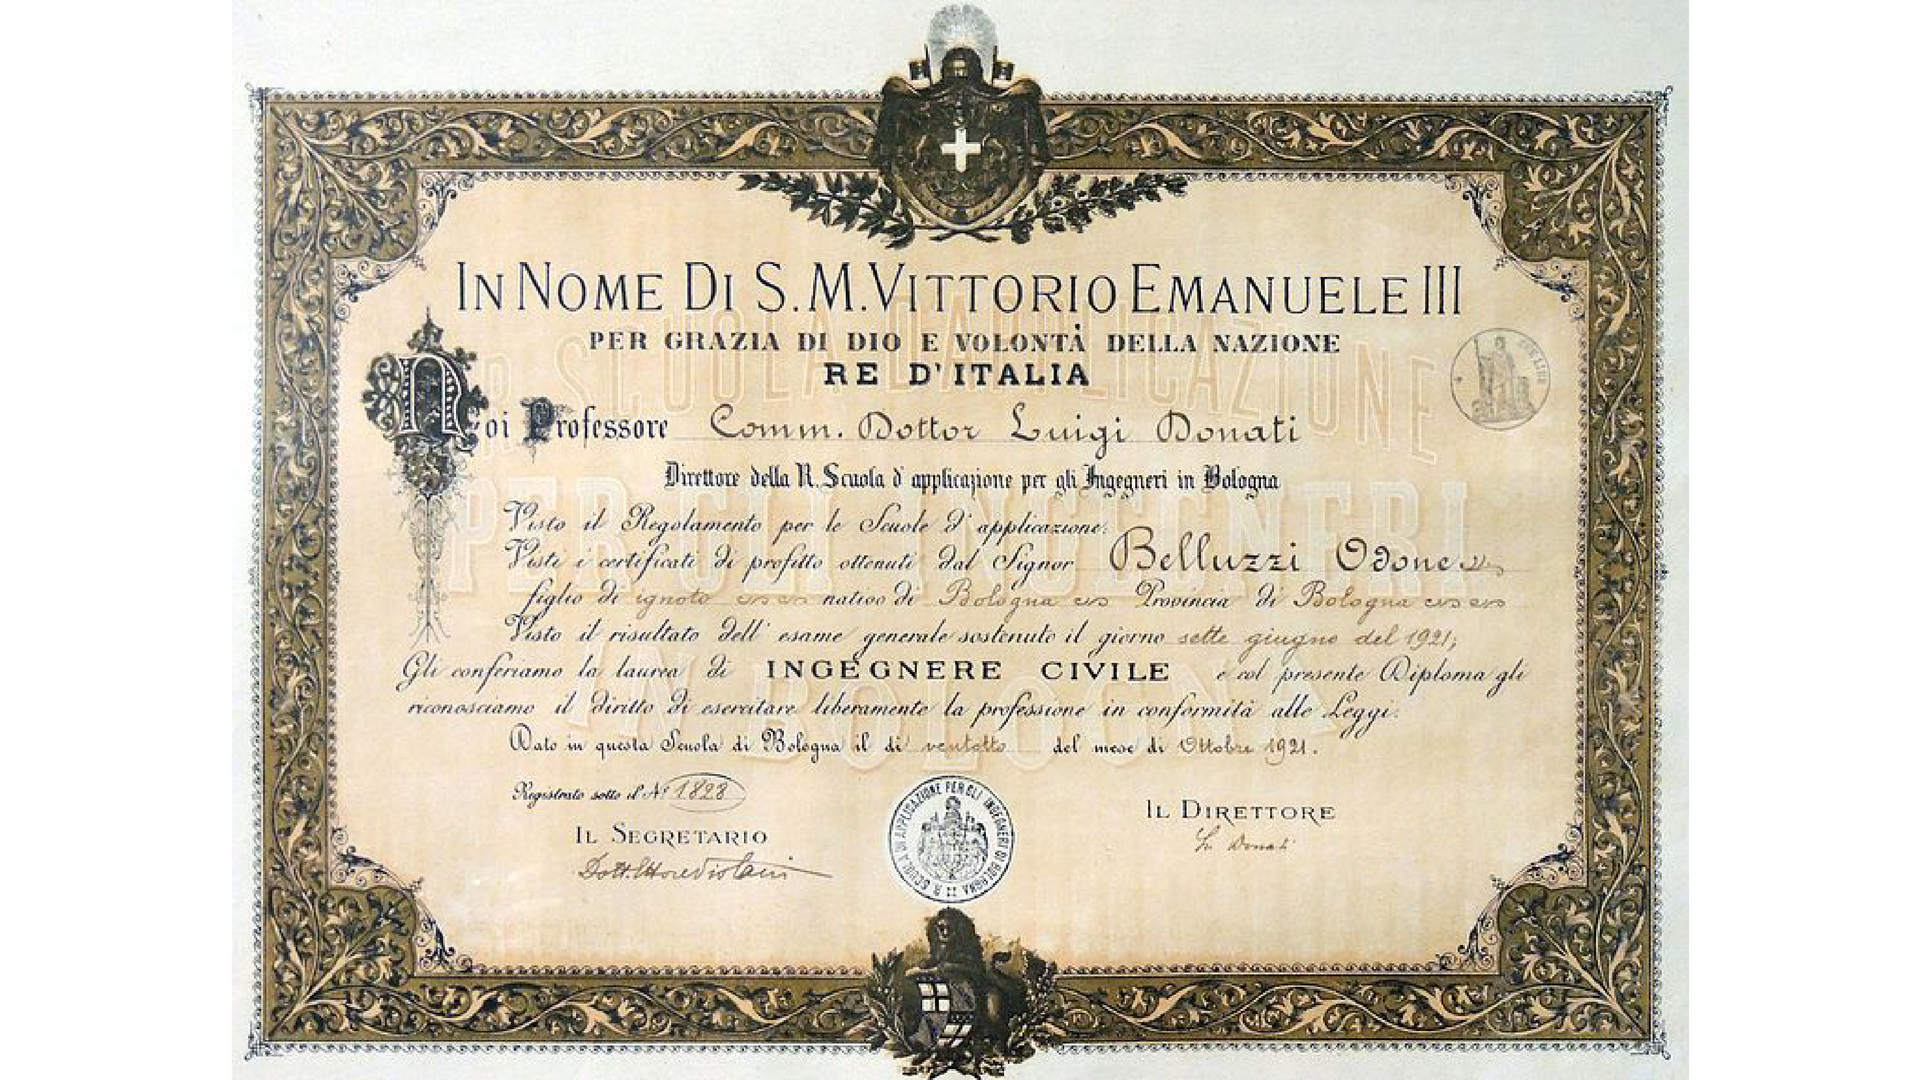 IN NOME DI S.M. VITTORIO EMANUELE III
PER GRAZIA DI DIO E VOLONTÀ DELLA NAZIONE
RE D'ITALIA
Noi Professore Comm. Dottor Luigi Donati
Direttore della R. Scuola d'applicazione per gli Ingegneri in Bologna
Visto il Regolamento per le Scuole d'applicazione:
Visti i certificati di profitto ottenuti dal Signor Belluzzi Odone
figlio di ignoto nativo di Bologna Provincia di Bologna
Visto il risultato dell'esame generale sostenuto il giorno sette giugno del 1921;
Gli conferiamo la laurea di INGEGNERE CIVILE e col presente Diploma gli
riconosciamo il diritto di esercitare liberamente la professione in conformità alle Leggi.
Dato in questa Scuola di Bologna il dì ventotto del mese di Ottobre 1921.
Registrato sotto il N.º 1828
IL SEGRETARIO
Dott. Ettore
IL DIRETTORE
L. Donati
R. SCUOLA DI APPLICAZIONE PER GLI INGEGNERI DI BOLOGNA
R. SCUOLA D'APPLICAZIONE
PER GLI INGEGNERI
IN BOLOGNA